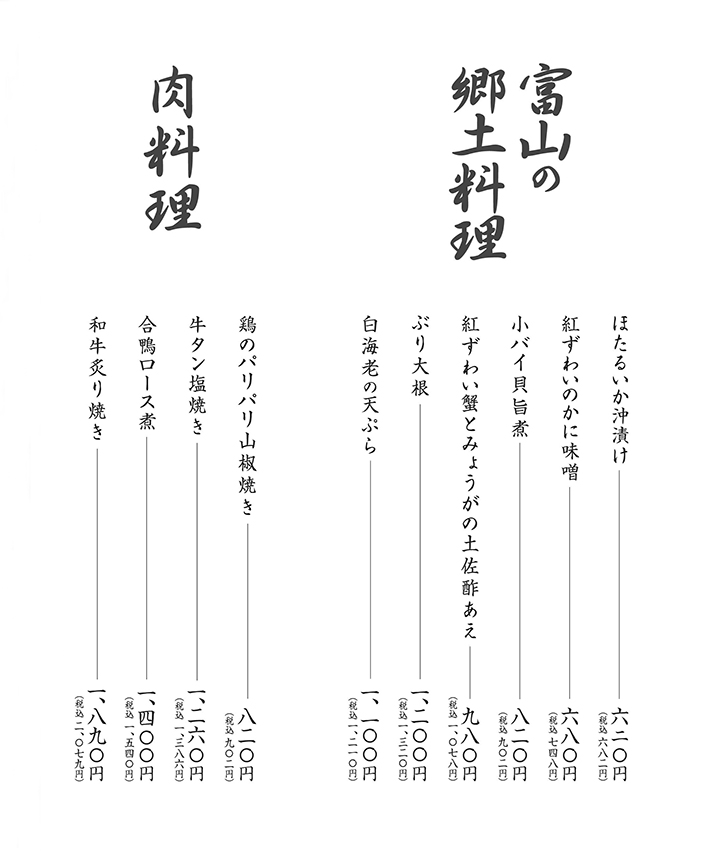 富山の
郷土料理
ほたるいか沖漬け 六二〇円
(税込 六八二円)
紅ずわいのかに味噌 六八〇円
(税込 七四八円)
小バイ貝旨煮 八二〇円
(税込 九〇二円)
紅ずわい蟹とみょうがの土佐酢あえ 九八〇円
(税込 一、〇七八円)
ぶり大根 一、二〇〇円
(税込 一、三二〇円)
白海老の天ぷら 一、一〇〇円
(税込 一、二一〇円)
肉料理
鶏のパリパリ山椒焼き 八二〇円
(税込 九〇二円)
牛タン塩焼き 一、二六〇円
(税込 一、三八六円)
合鴨ロース煮 一、四〇〇円
(税込 一、五四〇円)
和牛炙り焼き 一、八九〇円
(税込 二、〇七九円)